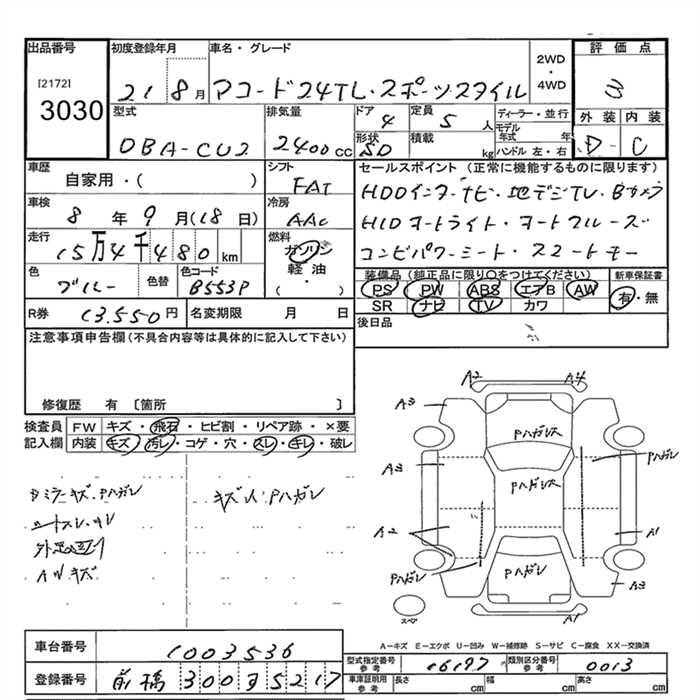 出品番号 初度登録年月 車名・グレード 2WD ・ 4WD 評価点
[2172]
3030
21 8月 アコード24TL・スポーツスタイル 3
型式 排気量 ドア 4 定員 5人 ディーラー・並行 外装 内装
DBA-CU2 2400cc 形状 SD 積載 kg モデル年式 年 ハンドル 左・右 D - C
車歴 シフト セールスポイント(正常に機能するものに限ります)
自家用・( ) FAT HDDインターナビ・地デジTV・Bカメラ
車検 冷房
8年9月(18日) AAC HIDオートライト・オートクルーズ
走行 燃料
15万4千480km ガソリン コンビパワーシート・スマートキー
色 色替 色コード 軽油
ブルー B553P ( ・ )
装備品(純正品に限り○をつけてください) 新車保証書
PS PW ABS エアB AW 有・無
SR ナビ TV カワ
R券 13.550円 名変期限 月 日 後日品
注意事項申告欄(不具合内容等は具体的に記入して下さい)
修復歴 有 〔箇所 〕
検査員 FW キズ・飛石・ヒビ割・リペア跡・×要
記入欄 内装 キズ・汚レ・コゲ・穴・スレ・キレ・破レ
Dミラーキズ・Pハガレ キズ人・Pハガレ
シートスレ・キレ
AWキズ
A2 A4
A3
Pハガレ大 Pハガレ
A3 Pハガレ大
A2 A1
Pハガレ Pハガレ A3
スペア A1
A-キズ E-エクボ U-凹み W-補修跡 S-サビ C-腐食 XX-交換済
車台番号 1003536
登録番号 前橋 300 す 5217
型式指定番号 参考 16197 類別区分番号 参考 0013
車庫証明用 参考 長さ cm 幅 cm 高さ cm